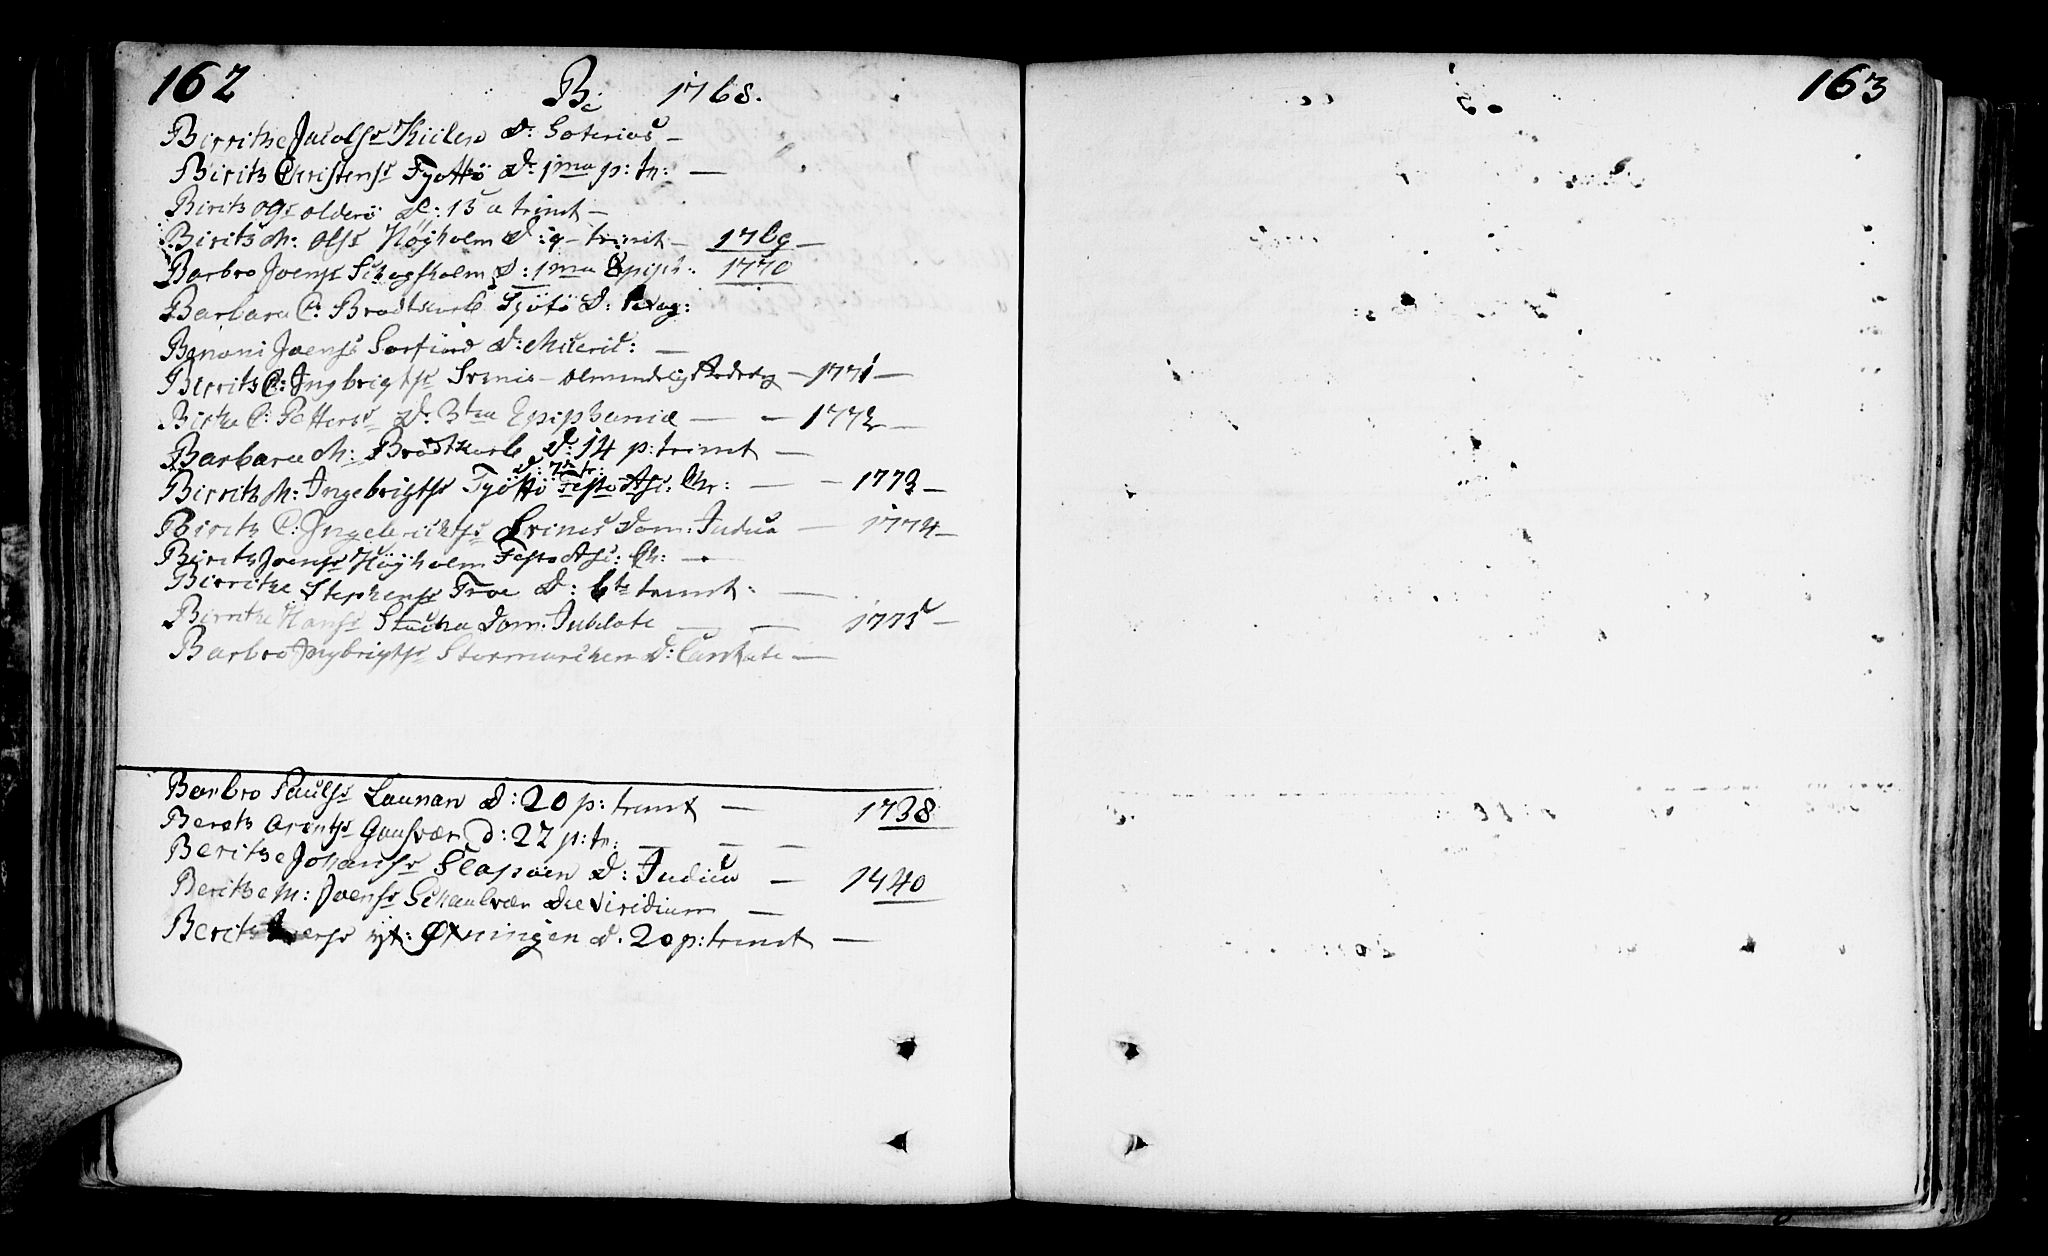 162
B: 1768.
Birrithe Jacobsr Kiilen D: Soterios —
Birith Christensr Tjøttö D: 1ma p: tr: —
Birith Olsr Olderö D: 13 a trinit —
Birith M: Olsr Höyholm D: 9 — trinit — 1769 —
Barbro Joensr Schogsholm D: 1ma Epiph: 1770
Barbara C: Brodtkorb Tjötö D:
Benoni Joens Sørfiord D: Miseric: —
Birrith C: Ingbrigtsr — 1771 —
Birthe C: Pettersr D: 3tia Epiphaniæ — — 1772 —
Barbara M: Brodtkorb D: 14 p: trinit —
D: 7 tr:
Birrith M: Ingebrigtsr Tjöttö Festo Asc: Chr: — — 1773 —
Birith C: Ingebrichtsr Dom: Judica — 1774 —
Birith Joensr Höyholm Festo Asc: Ch: —
Birrithe Stephensr Troe D: 6te trinit: —
Birrithe Hansr Stocka Dom: Jubilate — — 1775 —
Barbro Ingbrigtsr Stormarchen D: Cantate —
Barbro Paulsr Launan D: 20 p: trinit — 1738
Bereth Arentsr Gaasvær D: 22 p: tr: — — —
Berithe Johansr D: Judica — 1740
Berithe M: Joensr Schaalvær Die Viridium —
Berith Iversr yt: Øxningen D. 20 p: trinit —
163